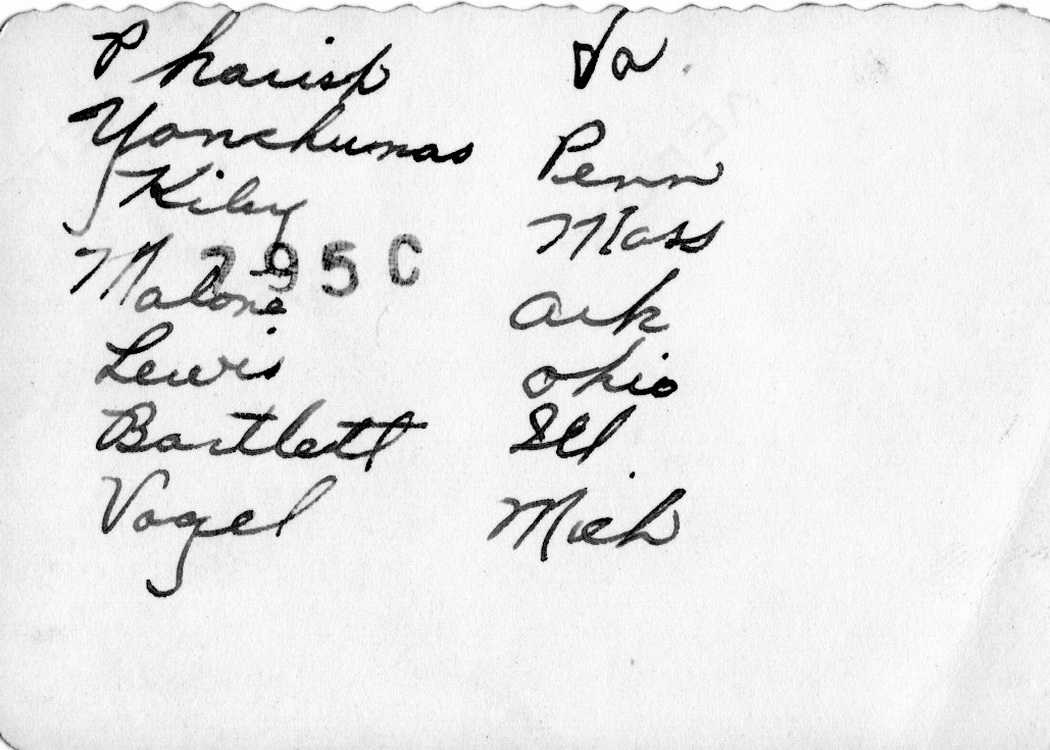 Pharish Va
Yonchumas Penn
Kiley Mass
295C
Malone Ark
Lewis Ohio
Bartlett Ill
Vogel Mich